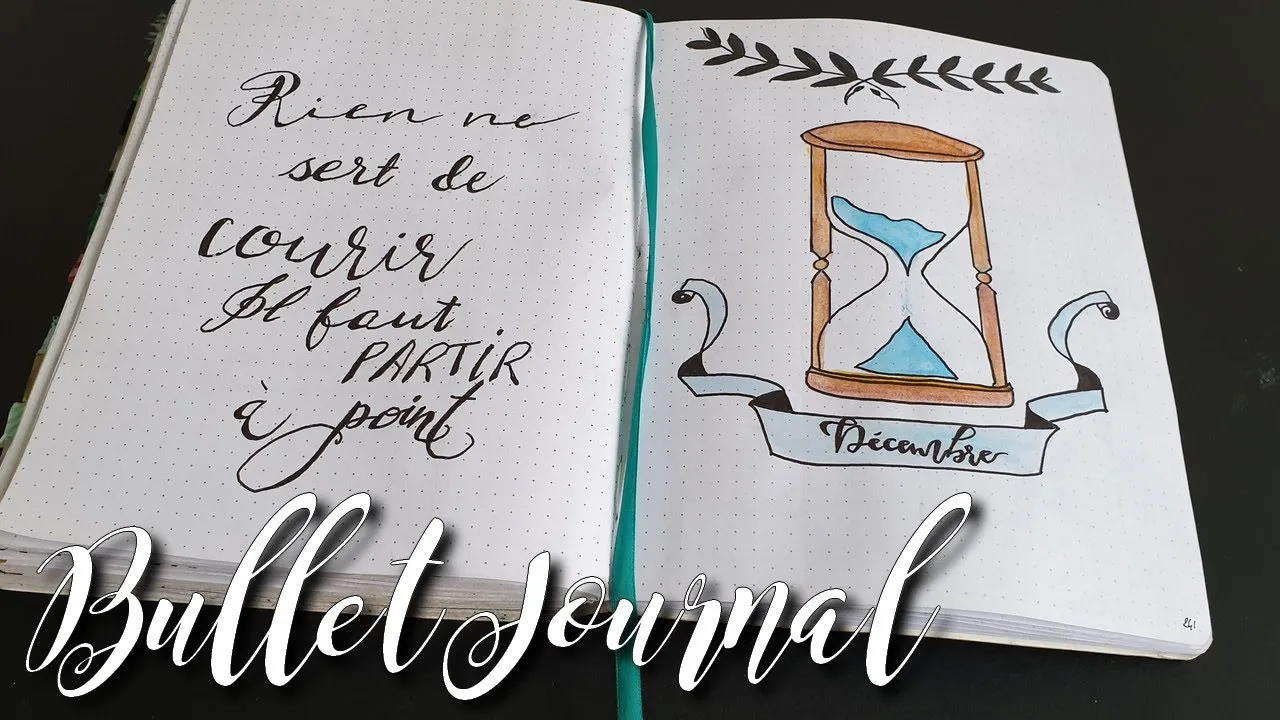 Rien ne
sert de
courir
Il faut
PARTIR
à point
Décembre
241
Bullet Journal